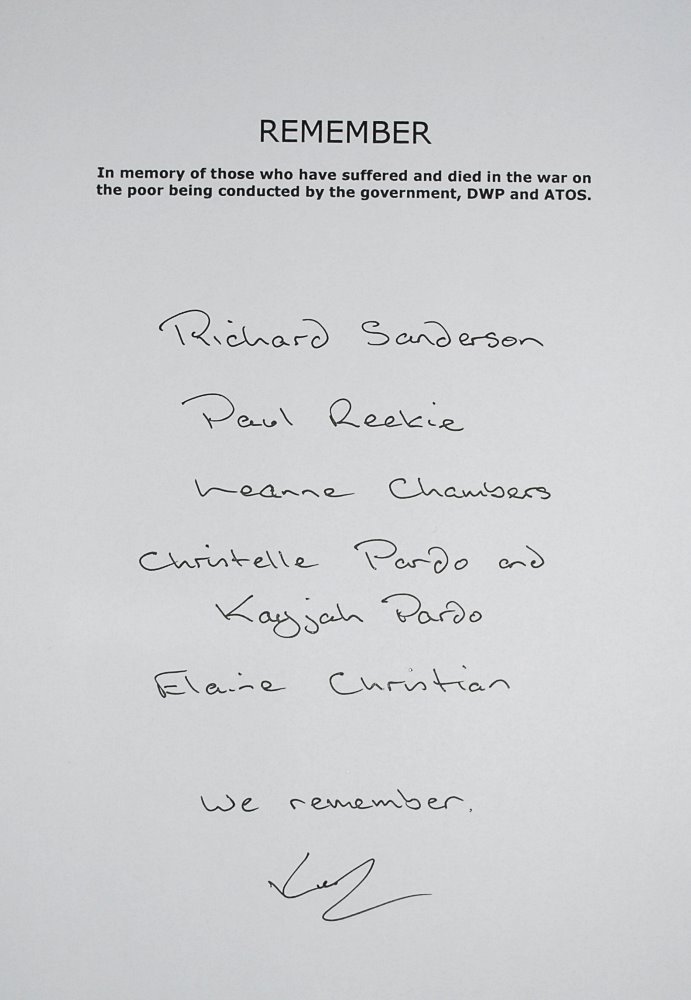 REMEMBER
In memory of those who have suffered and died in the war on
the poor being conducted by the government, DWP and ATOS.
Richard Sanderson
Paul Reekie
Leanne Chambers
Christelle Pardo and
Kayjah Pardo
Elaine Christian
We remember.